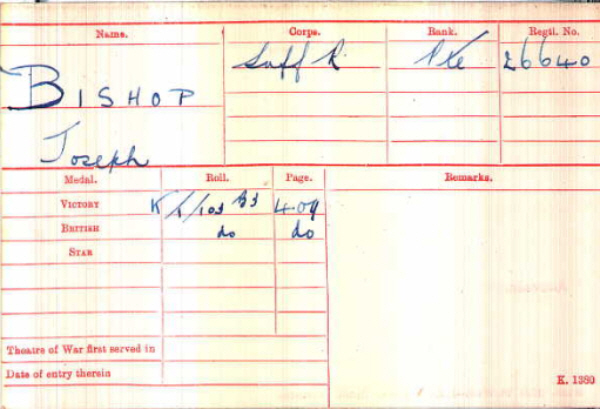 Name. Corps. Rank. Regtl. No.
Suff R. Pte 26640
BISHOP
Joseph
Medal. Roll. Page. Remarks.
VICTORY K/1/103 B3 409
BRITISH do do
STAR
Theatre of War first served in
Date of entry therein
K. 1380